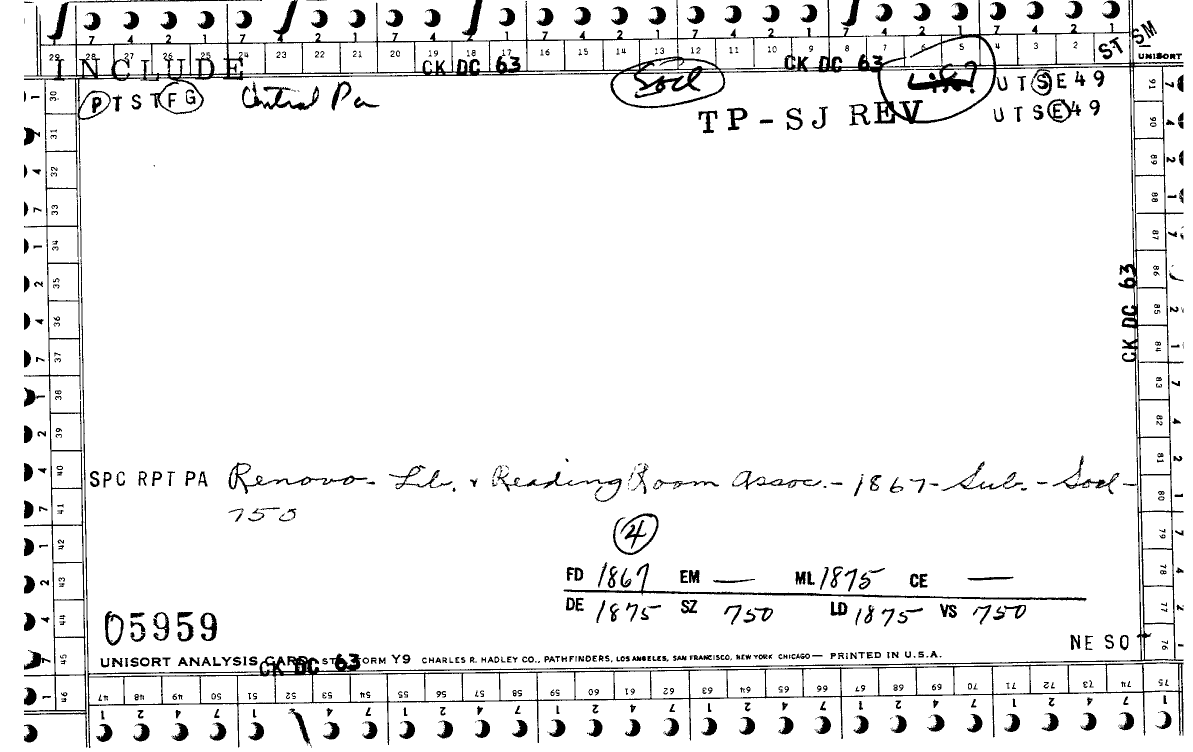 7 4 2 1 7 4 2 1 7 4 2 1 7 4 2 1 7 4 2 1 7 4 2 1 7 4 2 1
29 28 27 26 25 24 23 22 21 20 19 18 17 16 15 14 13 12 11 10 9 8 7 6 5 4 3 2
ST SM
UNISORT
INCLUDE
CK DC 63
CK DC 63
PTSTFG Central Pa
Socl
UTSE49
TP-SJ REV
UTSE49
CK DC 63
SPC RPT PA Renovo- Lib. & Reading Room Assoc.- 1867- Sub.- Socl-
750
4
FD 1867 EM — ML 1875 CE —
DE 1875 SZ 750 LD 1875 VS 750
05959
NE SO
UNISORT ANALYSIS CARD FORM Y9 CHARLES R. HADLEY CO., PATHFINDERS, LOS ANGELES, SAN FRANCISCO, NEW YORK CHICAGO— PRINTED IN U.S.A.
CK DC 63
47 48 49 50 51 52 53 54 55 56 57 58 59 60 61 62 63 64 65 66 67 68 69 70 71 72 73 74 75
1 2 4 7 1 2 4 7 1 2 4 7 1 2 4 7 1 2 4 7 1 2 4 7 1 2 4 7 1